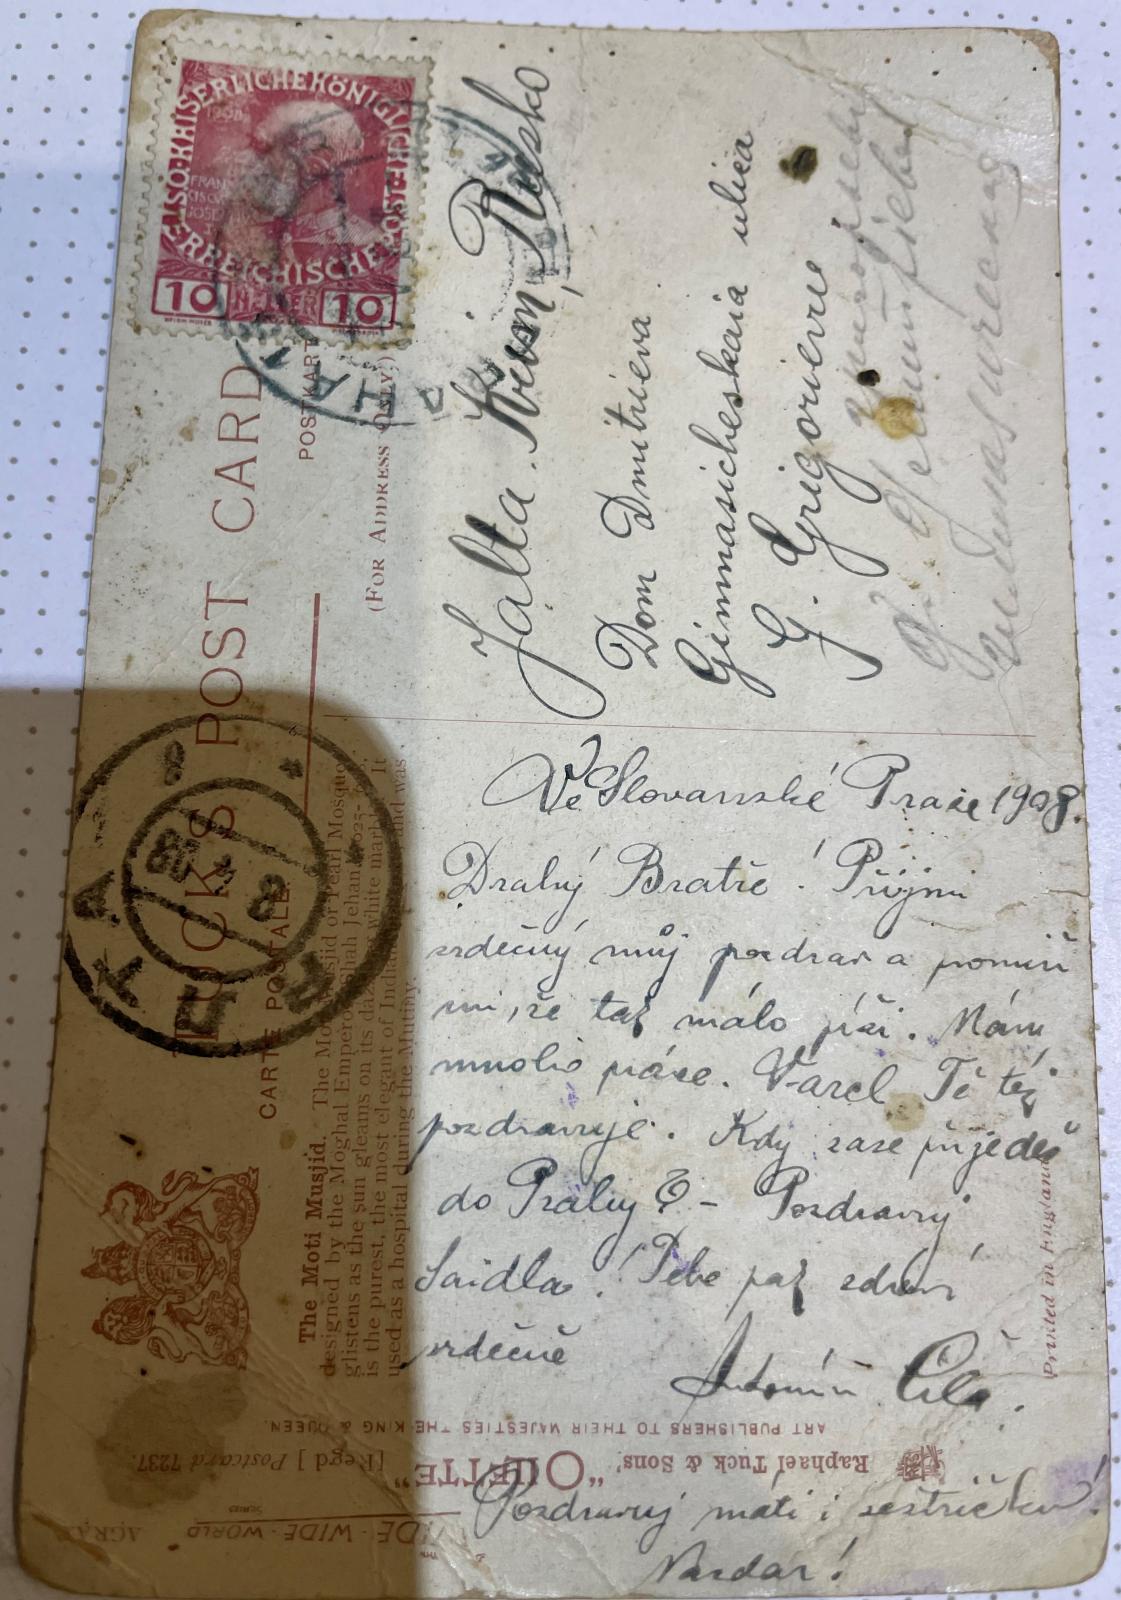 KAISERLICHE KÖNIGLICHE
ÖSTERREICHISCHE POST
1908
FRAN
CISCVS
JOSEF
10 HELLER 10
TUCK'S POST CARD
POSTKARTE
CARTE POSTALE
(FOR ADDRESS ONLY.)
Jalta. Krim, Rusko.
Dom Dmitrieva
Gimnasicheskaia ulica
G. Grigorieve
ЯЛТА
8
The Moti Musjid. The Moti Musjid or Pearl Mosque
designed by the Moghal Emperor Shah Jehan 1625-
glistens as the sun gleams on its white marble. It
is the purest, the most elegant of Indian and was
used as a hospital during the Mutiny.
Ve Slovanské Praze 1908.
Drahý Bratře! Přijmi
srdečný můj pozdrav a promiň
mi, že tak málo píši. Mám
mnoho práce. Karel Tě též
pozdravuje. Kdy zase přijedeš
do Prahy? – Pozdravuj
Saidla! Tebe pak zdraví
srdečně
Antonín
Pozdravuj máti i sestřičku!
Nazdar!
Printed in England
ART PUBLISHERS TO THEIR MAJESTIES THE KING & QUEEN.
Raphael Tuck & Sons' "OILETTE"
[Regd] Postcard 7237.
WIDE-WIDE-WORLD
SERIES
AGRA